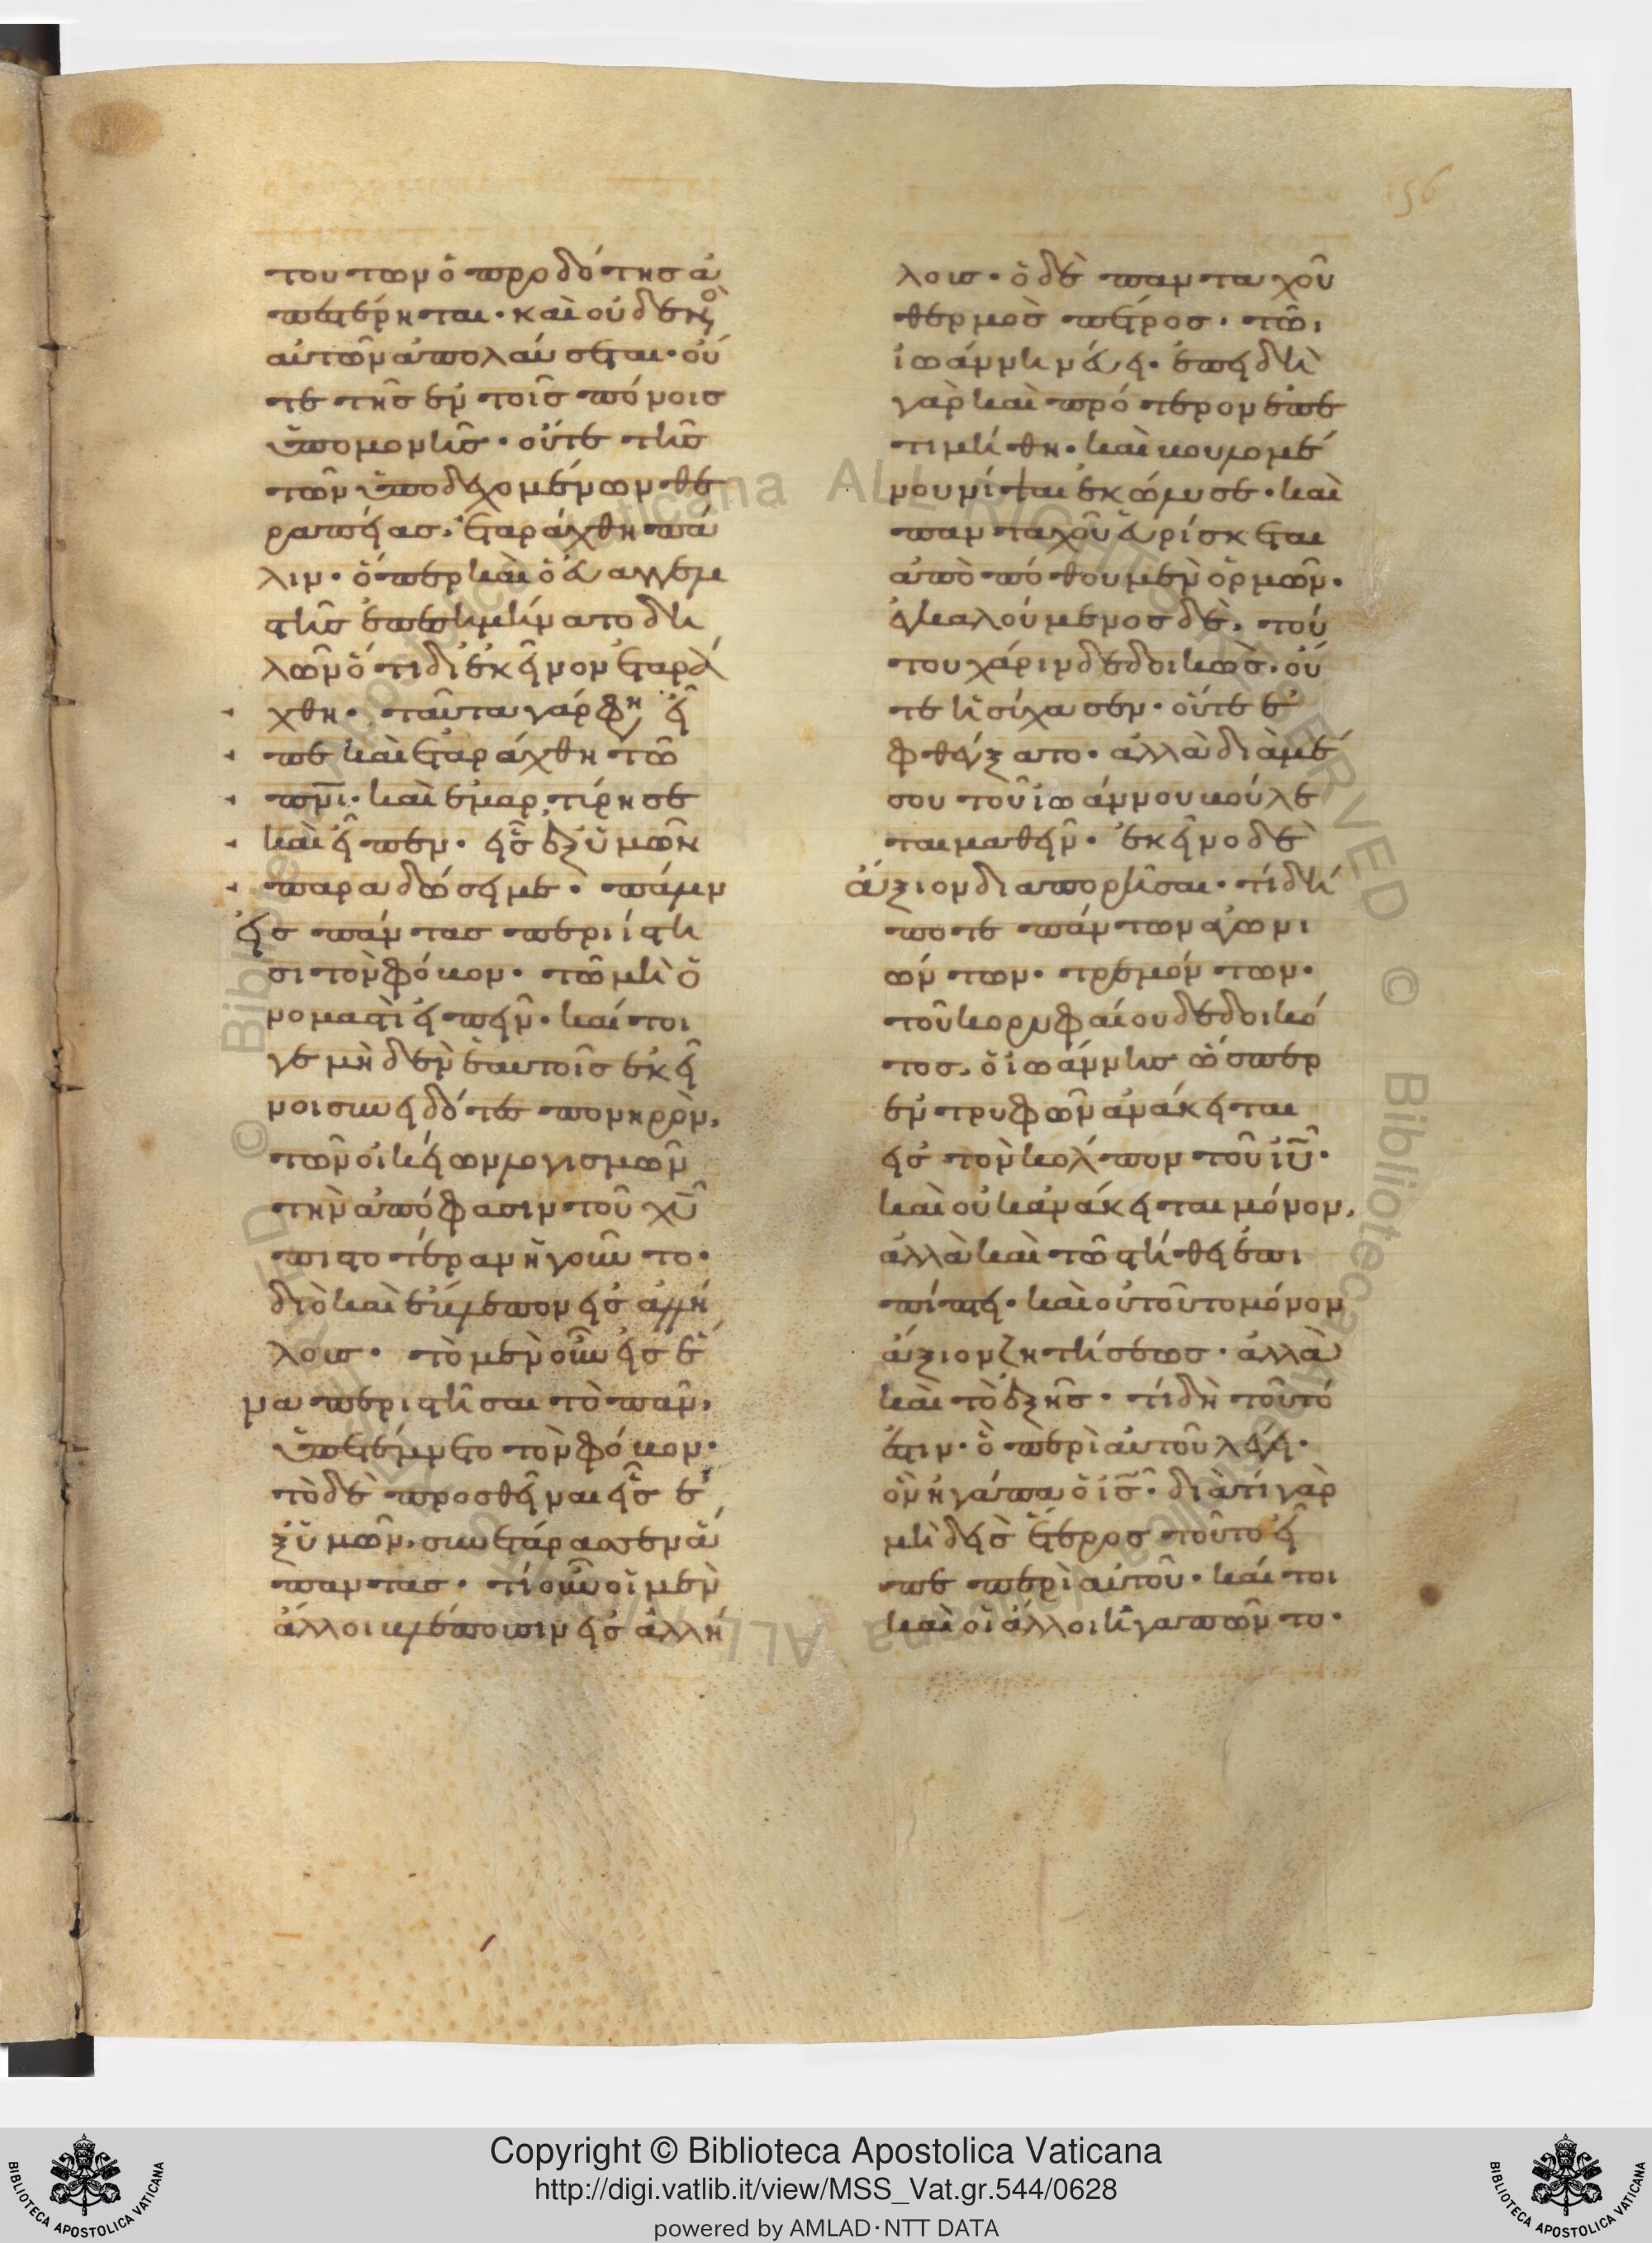 156
τούτων ὁ προδότης ἀ
πεστέρηται· καὶ οὐδενὸς
αὐτῶν ἀπολαύσεται· οὔ
τε τῆς ἐν τοῖς πόνοις
ὑπομονῆς· οὔτε τῆς
τῶν ὑποδεχομένων θε
ραπείας. ἐταράχθη πά
λιν· ὅπερ καὶ ὁ εὐαγγελι
στὴς ἐπεσημήνατο δη
λῶν ὅτι δι' ἐκεῖνον ἐταρά
χθη· ταῦτα γάρ φη εἶ
πε καὶ ἐταράχθη τῶ
πνι· καὶ ἐμαρτύρησε
καὶ εἶπεν· εἷς ἐξ ὑμῶν
παραδώσει με· πάλιν
εἰς πάντας περιίστη
σι τὸν φόβον· τῶ μὴ ὀ
νομαστὶ εἰπεῖν· καίτοι
γε μηδὲν ἑαυτοῖς ἐκεῖ
νοι συνειδότες πονηρὸν,
τῶν οἰκείων λογισμῶν
τὴν ἀπόφασιν τοῦ χυ
πιστοτέραν ἡγοῦντο·
διὸ καὶ ἔβλεπον εἰς ἀλλή
λους· τὸ μὲν οὖν εἰς ἕ
να περιστῆσαι τὸ πᾶν,
ὑπετέμνετο τὸν φόβον·
τὸ δὲ προσθεῖναι εἷς ἐ
ξ ὑμῶν, συνετάραξεν ἅ
παντας· τί οὖν οἱ μὲν
ἄλλοι βλέπουσιν εἰς ἀλλή
λους· ὁ δὲ πανταχοῦ
θερμὸς πέτρος, τῶ
ἰωάννη νεύει· ἐπειδὴ
γὰρ καὶ πρότερον ἐπε
τιμήθη· καὶ βουλομέ
νου νίψαι ἐκώλυσε· καὶ
πανταχοῦ εὑρίσκεται
ἀπὸ πόθου μὲν ὁρμῶν·
ἐγκαλούμενος δὲ, τού
του χάριν δεδοικὼς· οὔ
τε ἡσύχασεν· οὔτε ἐ
φθέγξατο· ἀλλὰ διὰ μέ
σου τοῦ ἰωάννου βούλε
ται μαθεῖν· ἐκεῖνο δὲ
ἄξιον διαπορῆσαι· τί δή
ποτε πάντων ἀγωνι
ώντων· τρεμόντων·
τοῦ κορυφαίου δεδοικό
τος, ὁ ἰωάννης ὥσπερ
ἐντρυφῶν ἀνάκειται
εἰς τὸν κόλπον τοῦ ἰυ·
καὶ οὐκ ἀνάκειται μόνον,
ἀλλὰ καὶ τῶ στήθει ἐπι
πίπτει· καὶ οὐ τοῦτο μόνον
ἄξιον ζητήσεως· ἀλλὰ
καὶ τὸ ἑξῆς· τί δὴ τοῦτό
ἐστιν· ὃ περὶ αὐτοῦ λέγει·
ὃν ἠγάπα ὁ ἰς· διὰ τί γὰρ
μηδεὶς ἕτερος τοῦτο εἶ
πε περὶ αὐτοῦ· καίτοι
καὶ οἱ ἄλλοι ἠγαπῶντο·
Copyright © Biblioteca Apostolica Vaticana
http://digi.vatlib.it/view/MSS_Vat.gr.544/0628
powered by AMLAD·NTT DATA
BIBLIOTECA APOSTOLICA VATICANA
BIBLIOTECA APOSTOLICA VATICANA